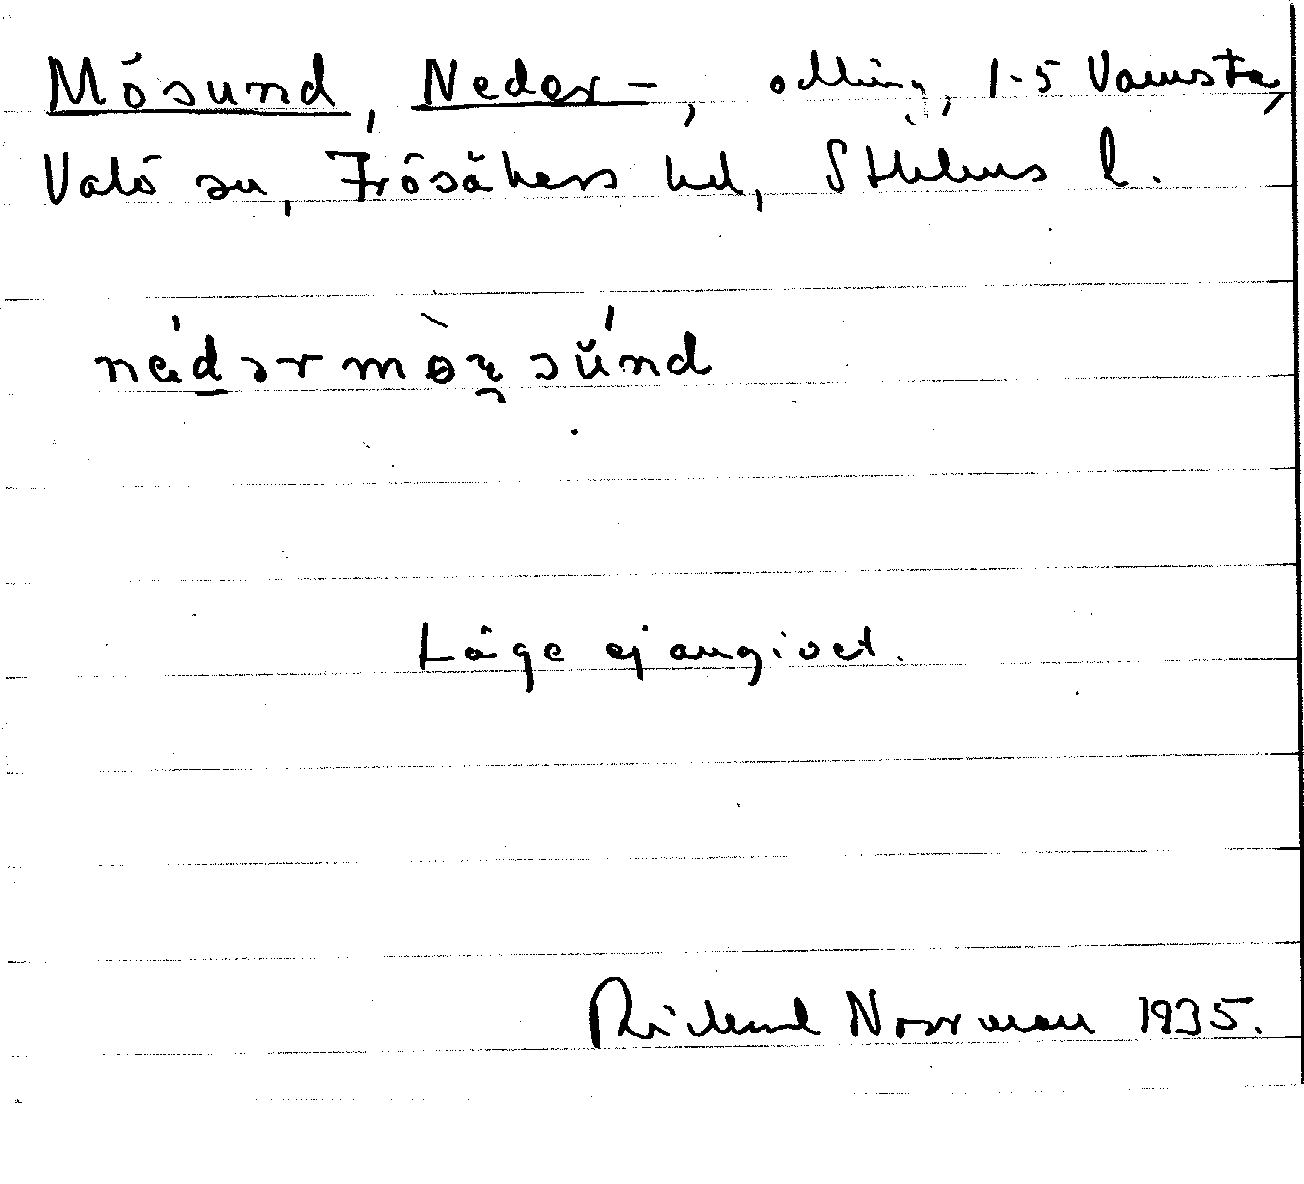 Mösund, Neder-, odling, 1-5 Vamsta,
Valö sn, Frösåkers hd, Sthlms l.
nédər mòɀsŭ́nd
Läge ej angivet.
Rickard Norrman 1935.